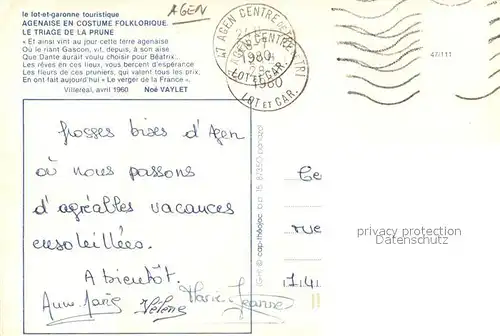 AGEN
le lot-et-garonne touristique
AGENAISE EN COSTUME FOLKLORIQUE
LE TRIAGE DE LA PRUNE
« Et ainsi vint au jour cette terre agenaise
Où le riant Gascon, vit, depuis, à son aise
Que Dante aurait voulu choisir pour Béatrix...
Les rêves en ces lieux, vous bercent d'espérance
Les fleurs de ces pruniers, qui valent tous les prix,
En ont fait aujourd'hui « Le verger de la France ».
Villereal, avril 1960 Noé VAYLET
47 AGEN CENTRE
1980
LOT ET GAR.
1980
LOT ET GAR.
47/111
Grosses bises d'Agen
où nous passons
d'agréables vacances
ensoleillées.
A bientôt.
Anne Marie Hélène Marie Jeanne
cap-théojac b.p. 15 87350 panazol
rue
privacy protection
Datenschutz